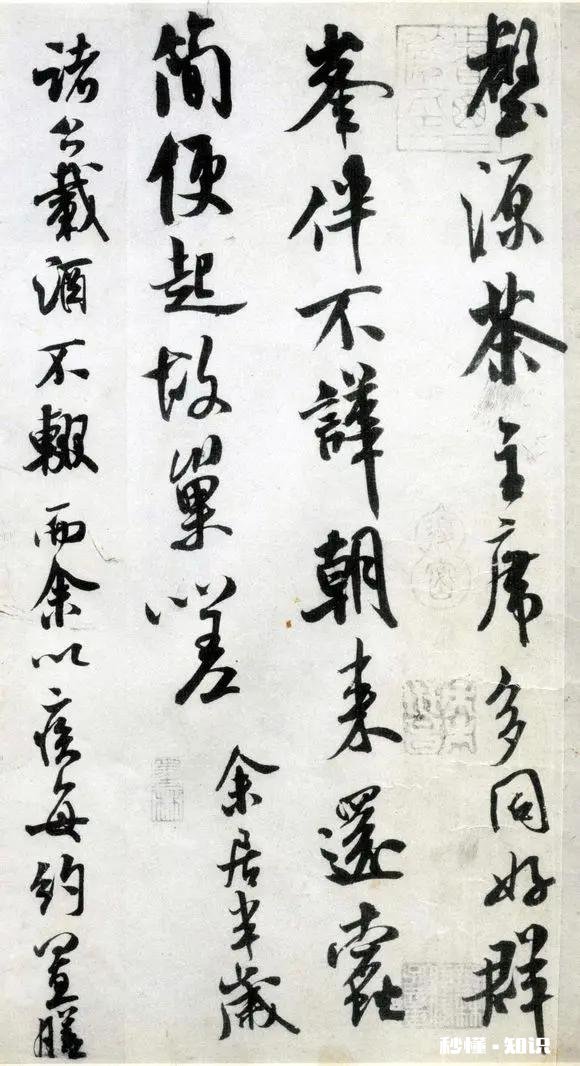 壑源茶主席多同好群
峯伴不譁朝来還蠹
簡便起故巢嗟
余居半歲
諸公載酒不輟而余以疾每約置膳
秒懂·知识